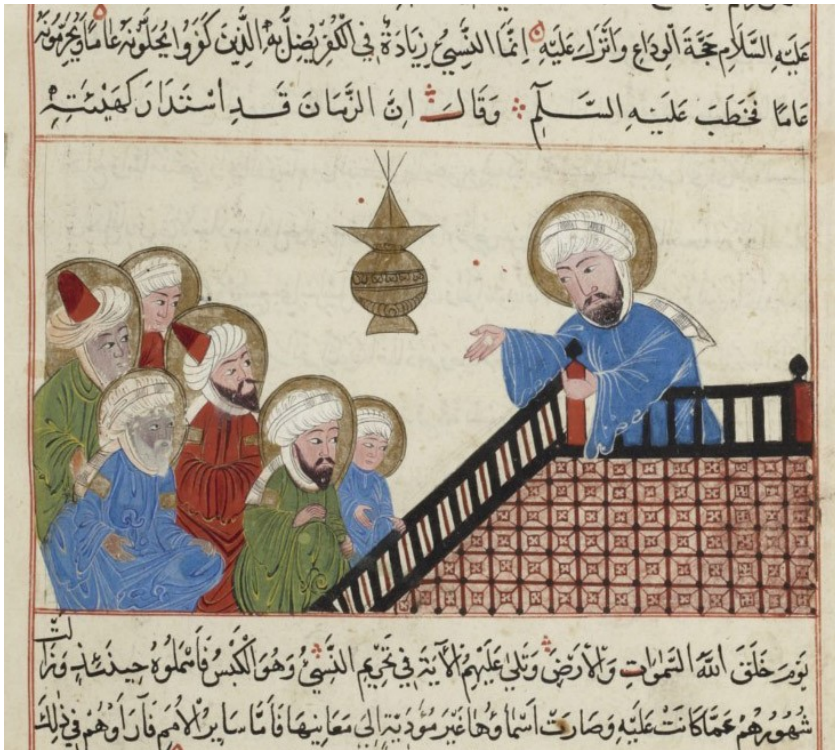 عليه السلام حجة الوداع وانزل عليه انما النسيئ زيادة في الكفر يضل به الذين كفروا يحلونه عاما ويحرمونه
عاما فخطب عليه السلام وقال ان الزمان قد استدار كهيئته
يوم خلق الله السموات والارض وتلى عليهم الآية في تحريم النسيئ وهو الكبس فأهملوه حينئذ وزالت
شهورهم عما كانت عليه وصارت اسماؤها غير مؤدية الى معانيها فأما ساير الأمم فآراؤهم في ذلك